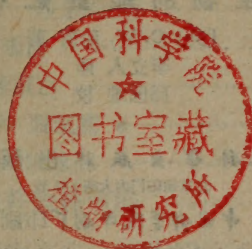 中国科学院
★
图书室藏
植物研究所